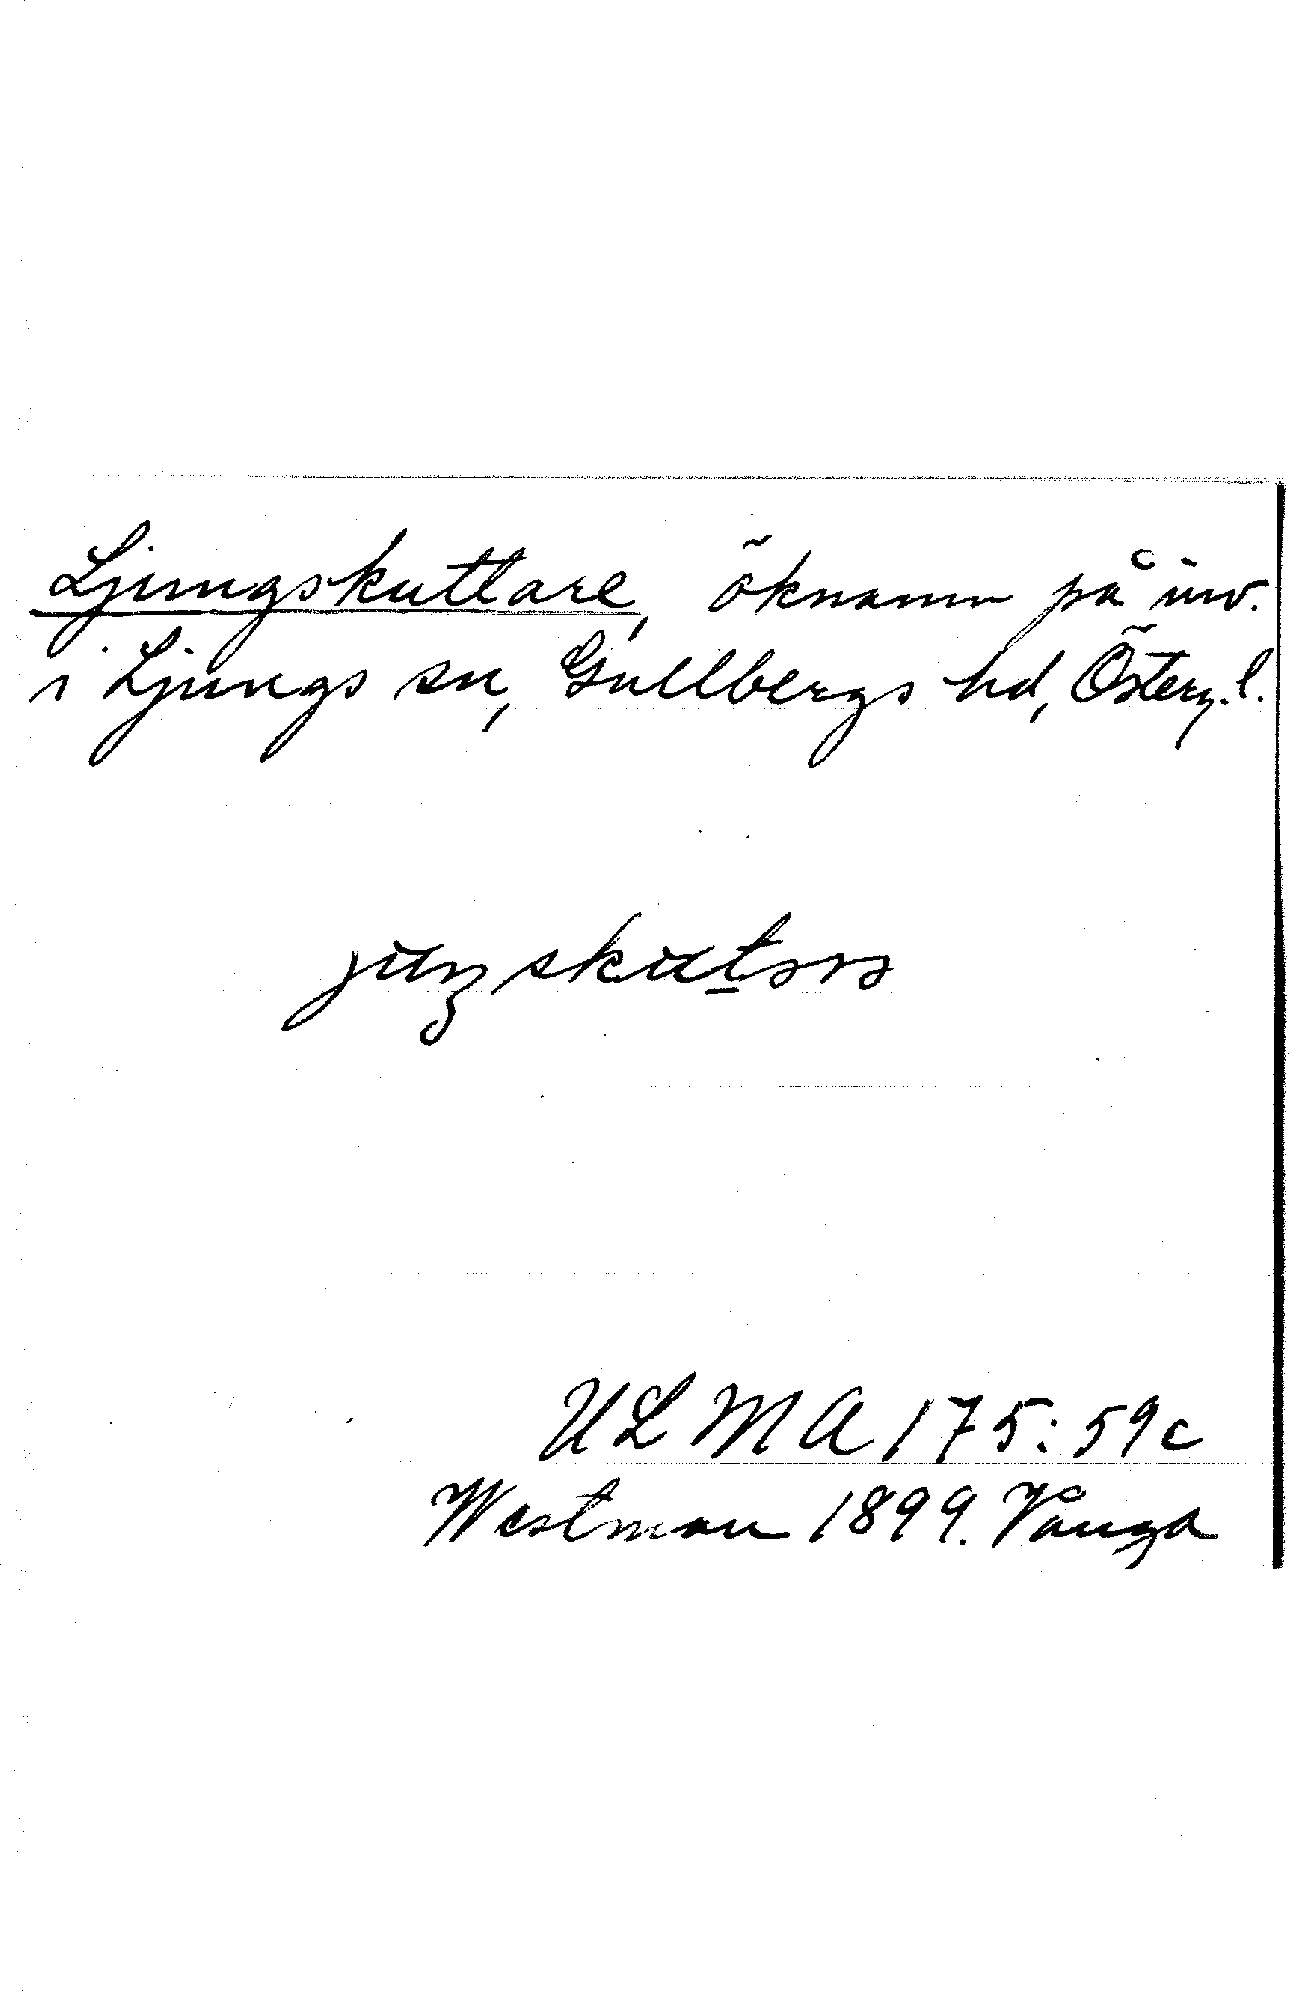 Ljungskuttare, öknamn på inv.
i Ljungs sn, Gullbergs hd, Österg.l.
ULMA 175:59c
Westman 1899. Vånga